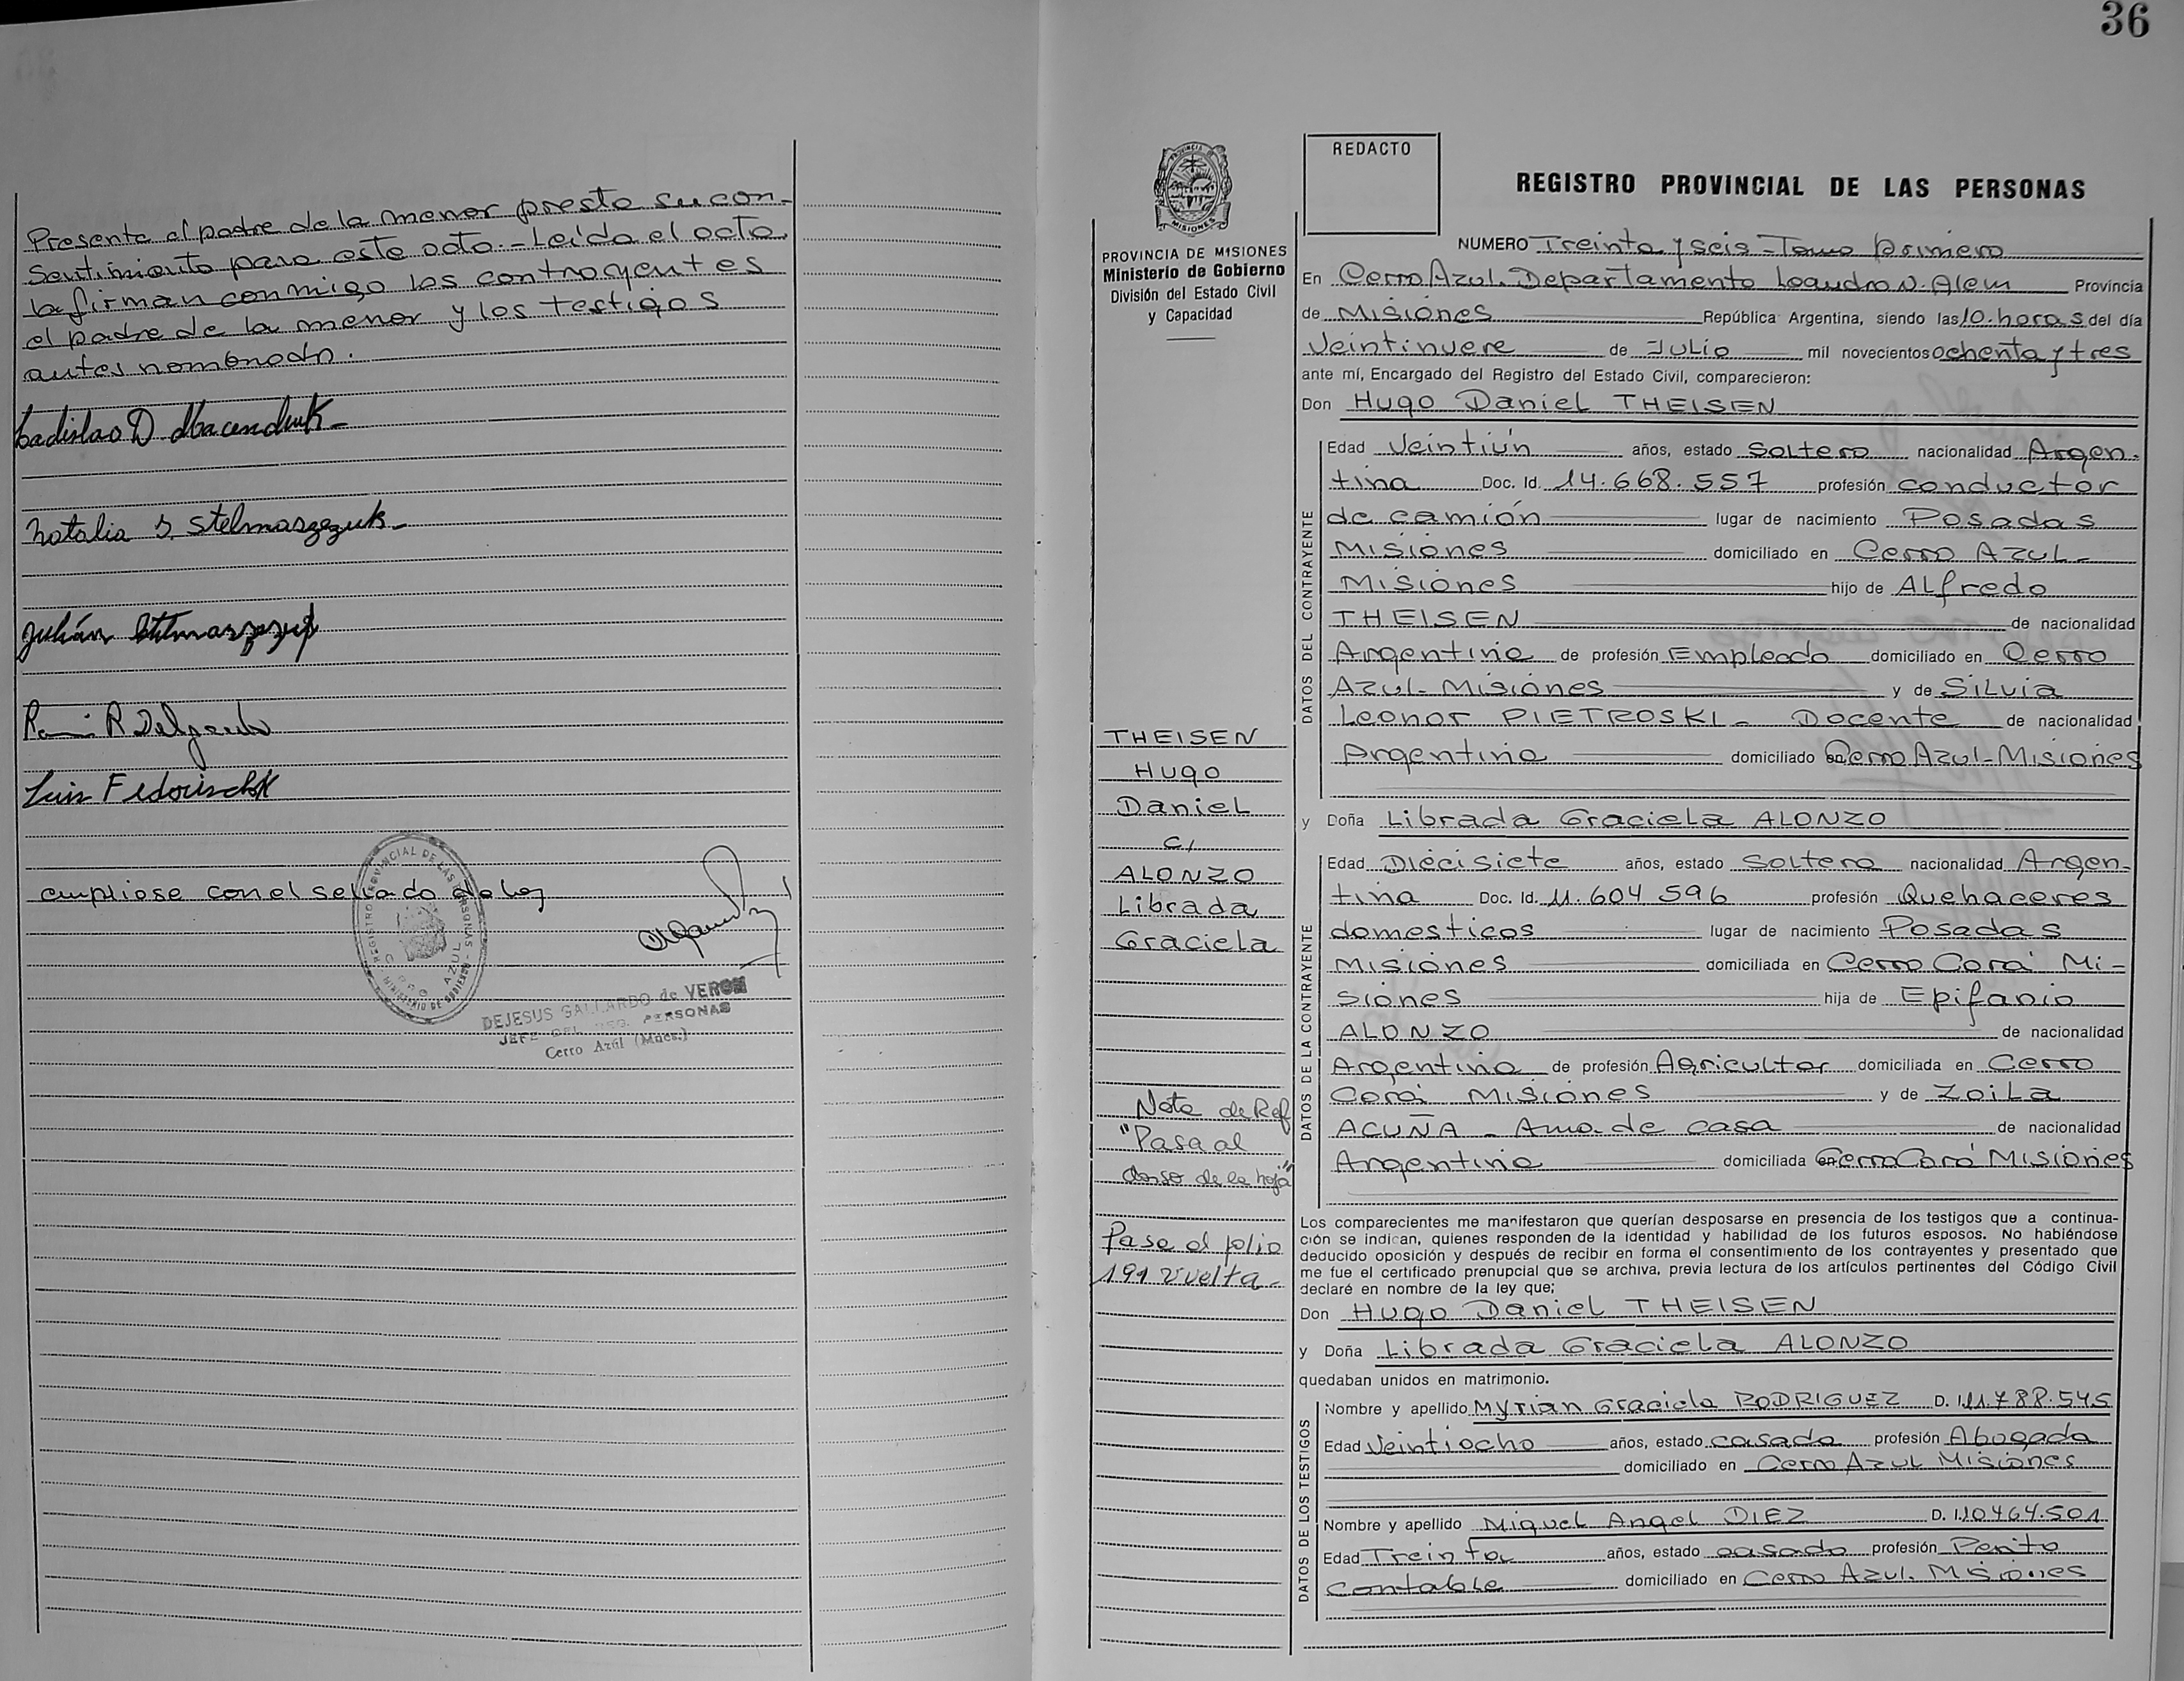 Presente el padre de la menor presta su con-
sentimiento para este acto.- Leída el acta
la firman conmigo los contrayentes
el padre de la menor y los testigos
antes nombrado.
Ladislao D.
Natalia S. Stelmaszczuk-
Julián Stelmaszczuk
R. Delgado
Luis
cumpliose con el sellado de ley
REGISTRO PROVINCIAL DE LAS PERSONAS
MINISTERIO DE GOBIERNO
CERRO AZUL
DEJESUS GALLARDO de VERON
JEFE DEL REG. PERSONAS
Cerro Azúl (Mnes.)
36
PROVINCIA DE MISIONES
Ministerio de Gobierno
División del Estado Civil
y Capacidad
THEISEN
Hugo
Daniel
c/
ALONZO
Librada
Graciela
Nota de Ref
"Pasa al
dorso de la hoja"
Pase al folio
191 vuelta-
REDACTO
REGISTRO PROVINCIAL DE LAS PERSONAS
NUMERO Treinta y seis - Tomo primero
En Cerro Azul. Departamento Leandro N. Alem Provincia
de Misiones República Argentina, siendo las 10. horas del día
Veintinueve de Julio mil novecientos ochenta y tres
ante mí, Encargado del Registro del Estado Civil, comparecieron:
Don Hugo Daniel THEISEN
DATOS DEL CONTRAYENTE
Edad Veintiún años, estado Soltero nacionalidad Argen-
tina Doc. Id. 14.668.557 profesión conductor
de camión lugar de nacimiento Posadas
Misiones domiciliado en Cerro Azul-
Misiones hijo de Alfredo
THEISEN de nacionalidad
Argentina de profesión Empleado domiciliado en Cerro
Azul- Misiones y de Silvia
Leonor PIETROSKI- Docente de nacionalidad
Argentina domiciliado en Cerro Azul-Misiones
y Doña Librada Graciela ALONZO
DATOS DE LA CONTRAYENTE
Edad Diecisiete años, estado Soltera nacionalidad Argen-
tina Doc. Id. 11.604 596 profesión Quehaceres
domesticos lugar de nacimiento Posadas
Misiones domiciliada en Cerro Corá Mi-
siones hija de Epifanio
ALONZO de nacionalidad
Argentina de profesión Agricultor domiciliada en Cerro
Corá Misiones y de Zoila
ACUÑA - Ama de casa de nacionalidad
Argentina domiciliada en Cerro Corá Misiones
Los comparecientes me manifestaron que querían desposarse en presencia de los testigos que a continua-
ción se indican, quienes responden de la identidad y habilidad de los futuros esposos. No habiéndose
deducido oposición y después de recibir en forma el consentimiento de los contrayentes y presentado que
me fue el certificado prenupcial que se archiva, previa lectura de los artículos pertinentes del Código Civil
declaré en nombre de la ley que;
Don Hugo Daniel THEISEN
y Doña Librada Graciela ALONZO
quedaban unidos en matrimonio.
DATOS DE LOS TESTIGOS
Nombre y apellido Myrian Graciela RODRIGUEZ D. I. 11.788.545
Edad Veintiocho años, estado casada profesión Abogada
domiciliado en Cerro Azul Misiones
Nombre y apellido Miguel Angel DIEZ D. I. 10464.501
Edad Treinta años, estado casado profesión Perito
Contable domiciliado en Cerro Azul. Misiones